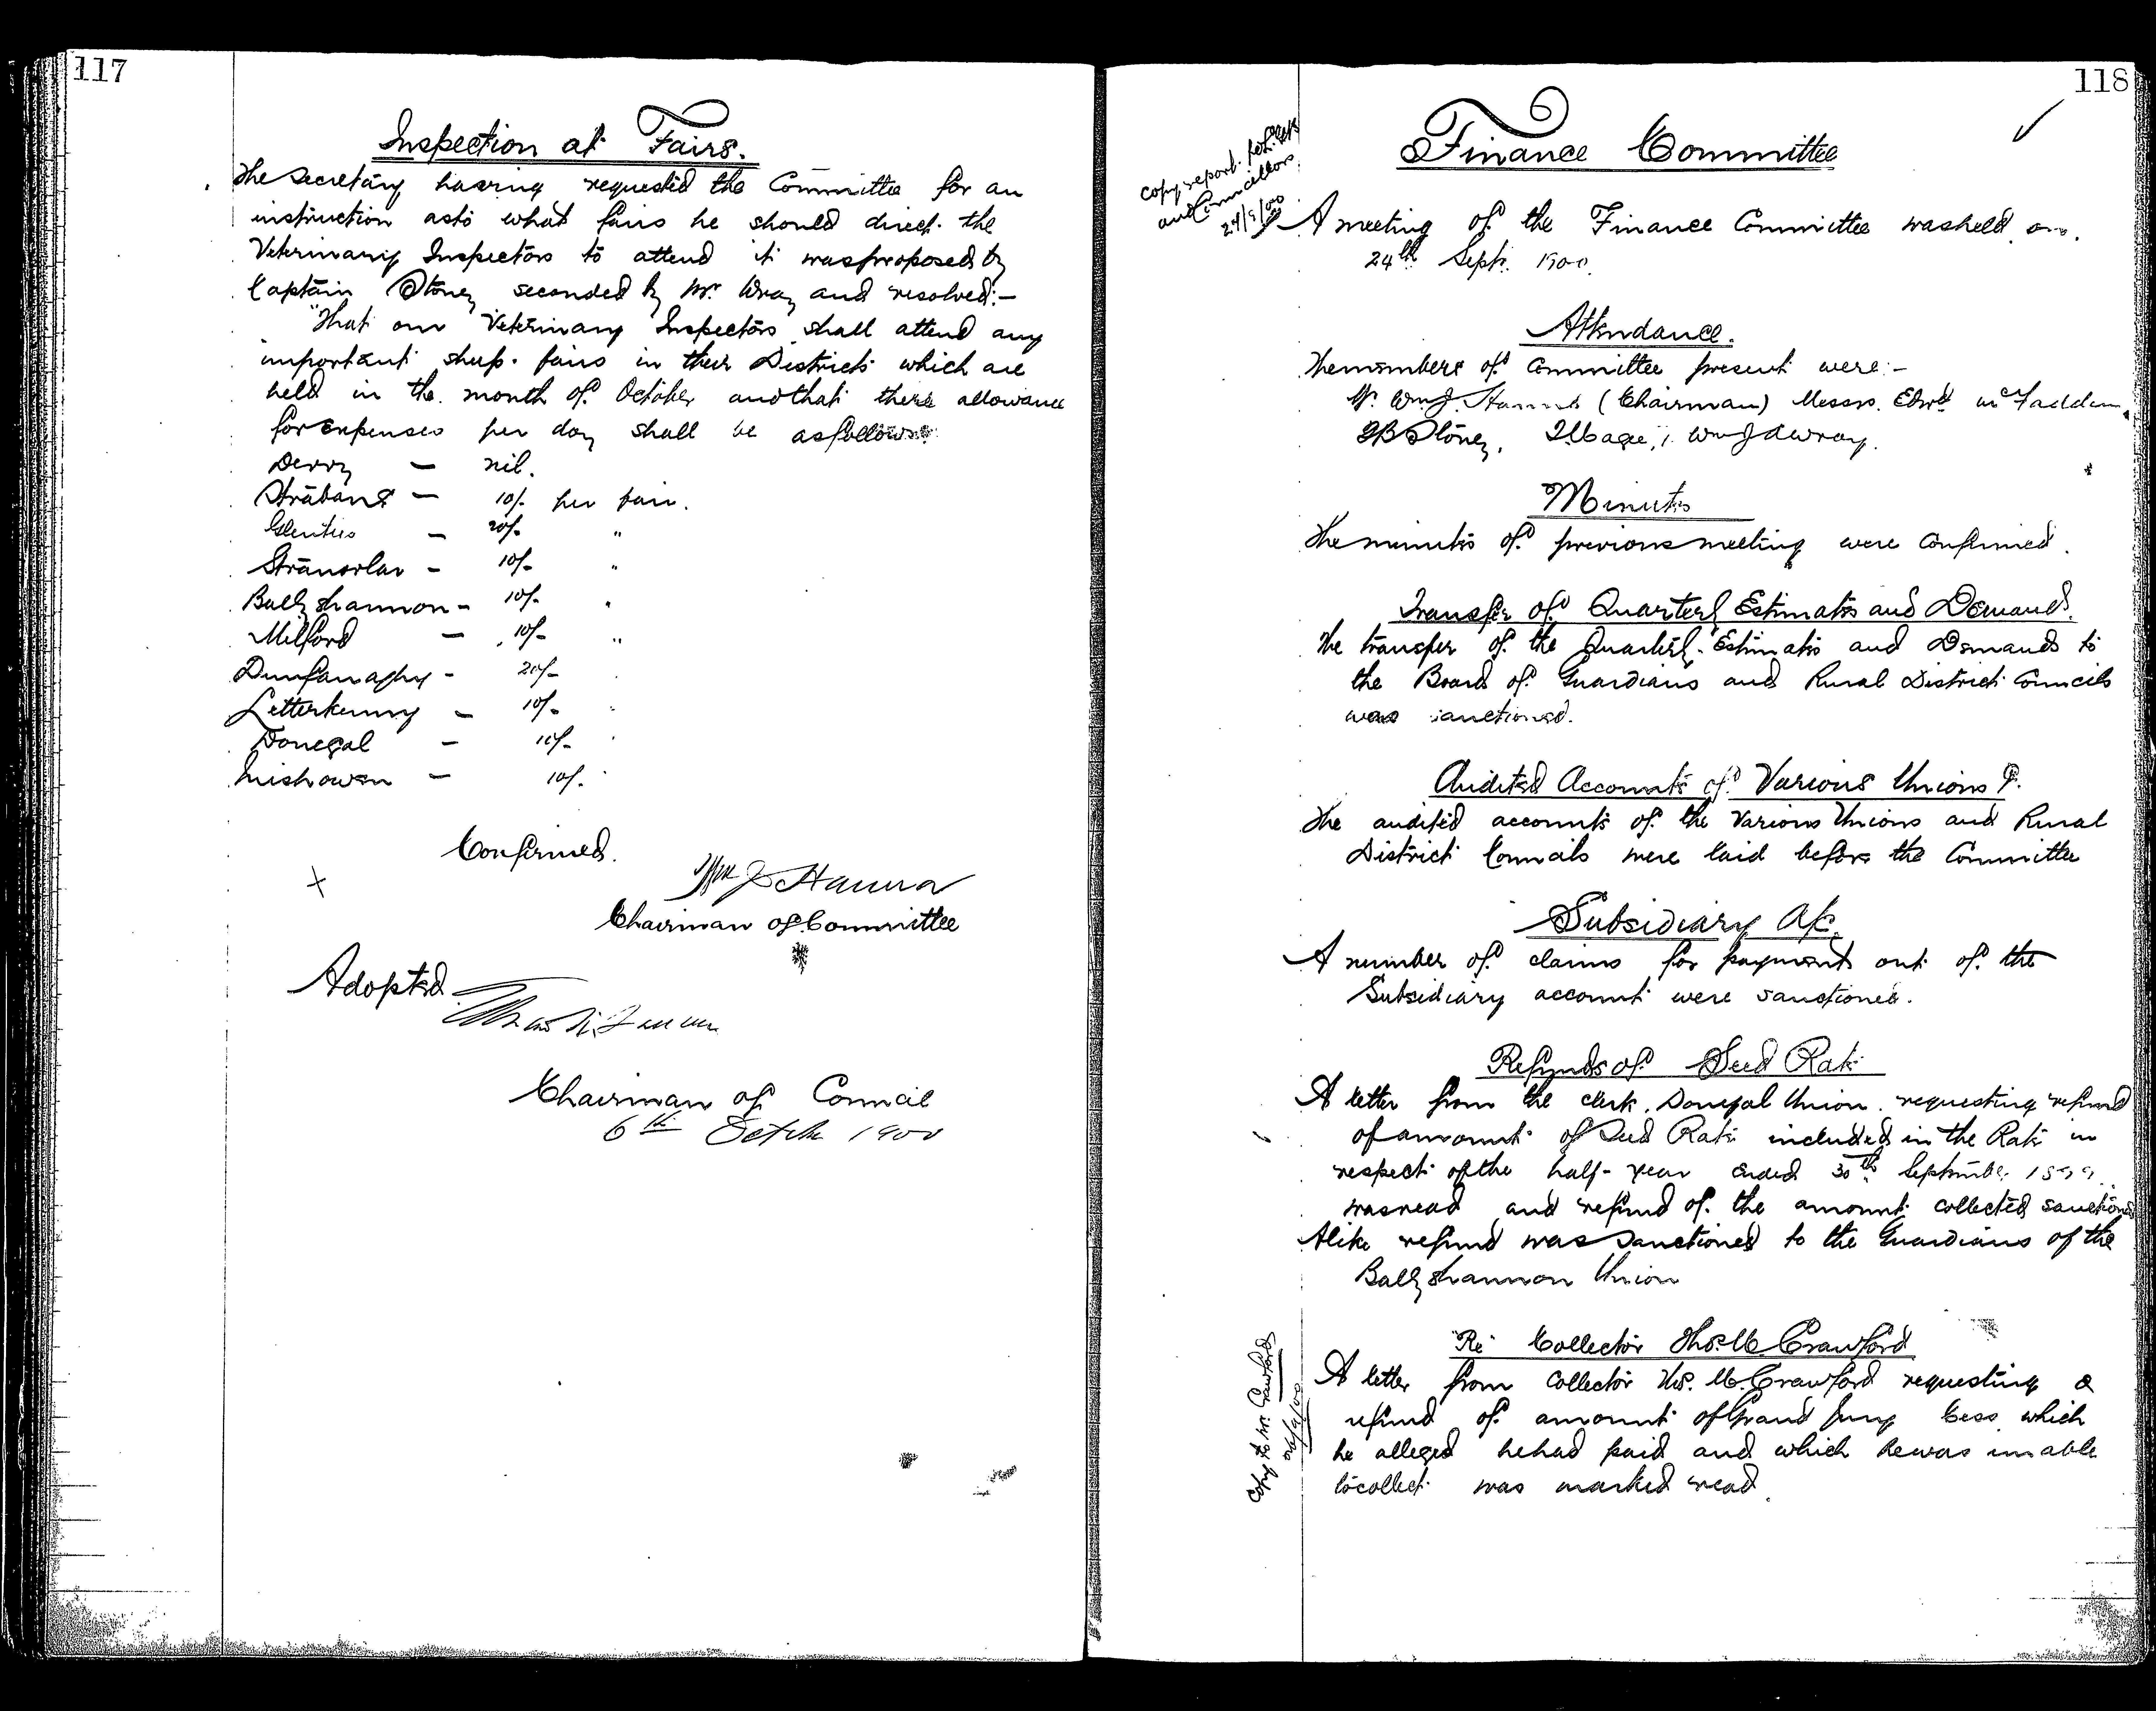 117
Inspection at Fairs.
The Secretary having requested the Committee for an
instruction as to what fairs he should direct the
Veterinary Inspectors to attend it was proposed by
Captain Stoney seconded by Mr. Wray and resolved:—
"That our Veterinary Inspectors shall attend any
important sheep fairs in their Districts which are
held in the month of October and that there allowance
for expenses per day shall be as follows:
Derry — nil.
Strabane — 10/- per fair.
Glenties — 20/- "
Stranorlar — 10/- "
Ballyshannon — 10/- "
Milford — 10/- "
Dunfanaghy — 20/-
Letterkenny — 10/- "
Donegal — 10/- "
Inishowen — 10/- "
Confirmed.
Wm J Hanna
Chairman of Committee
Adopted
Chairman of Council
6th October 1900
118
Finance Committee
copy report
and Councillors.
24/9/00
A meeting of the Finance Committee was held on
24th Sept. 1900.
Attendance.
The members of Committee present were:—
Mr. Wm J. Hanna (Chairman) Messrs. Edwd McFadden,
JB Stoney, Magee, Wm J A Wray.
Minutes
The minutes of previous meeting were confirmed.
Transfer of Quarterly Estimates and Demands.
The transfer of the Quarterly Estimates and Demands to
the Board of Guardians and Rural District Councils
was sanctioned.
Audited Accounts of Various Unions &.
The audited accounts of the Various Unions and Rural
District Councils were laid before the Committee
Subsidiary A/c.
A number of claims for payments out of the
Subsidiary account were sanctioned.
Refunds of Seed Rate
A letter from the clerk, Donegal Union requesting refund
of amount of Seed Rate included in the Rate in
respect of the half-year ended 30th September 1899
was read and refund of the amount collected sanctioned
A like refund was sanctioned to the Guardians of the
Ballyshannon Union
Re Collector Thos. M. Crawford
Copy to Mr. Crawford
26/9/00
A letter from Collector Thos. M. Crawford requesting a
refund of amount of Grand Jury Cess which
he alleged he had paid and which he was unable
to collect was marked read.